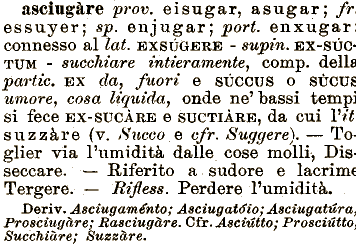 asciugàre prov. eisugar, asugar; fr.
essuyer; sp. enjugar; port. enxugar:
connesso al lat. EXSÚGERE - supin. EX-SÚC-
TUM - succhiare intieramente, comp. della
partic. EX da, fuori e SÚCCUS o SÚCUS
umore, cosa liquida, onde ne' bassi tempi
si fece EX-SUCÀRE e SUCTIÀRE, da cui l'it.
suzzàre (v. Succo e cfr. Suggere). — To-
glier via l'umidità dalle cose molli, Dis-
seccare. — Riferito a sudore e lacrime
Tergere. — Rifless. Perdere l'umidità.
Deriv. Asciugaménto; Asciugatóio; Asciugatúra,
Prosciugàre; Rasciugàre. Cfr. Asciútto; Prosciútto;
Succhiàre; Suzzàre.